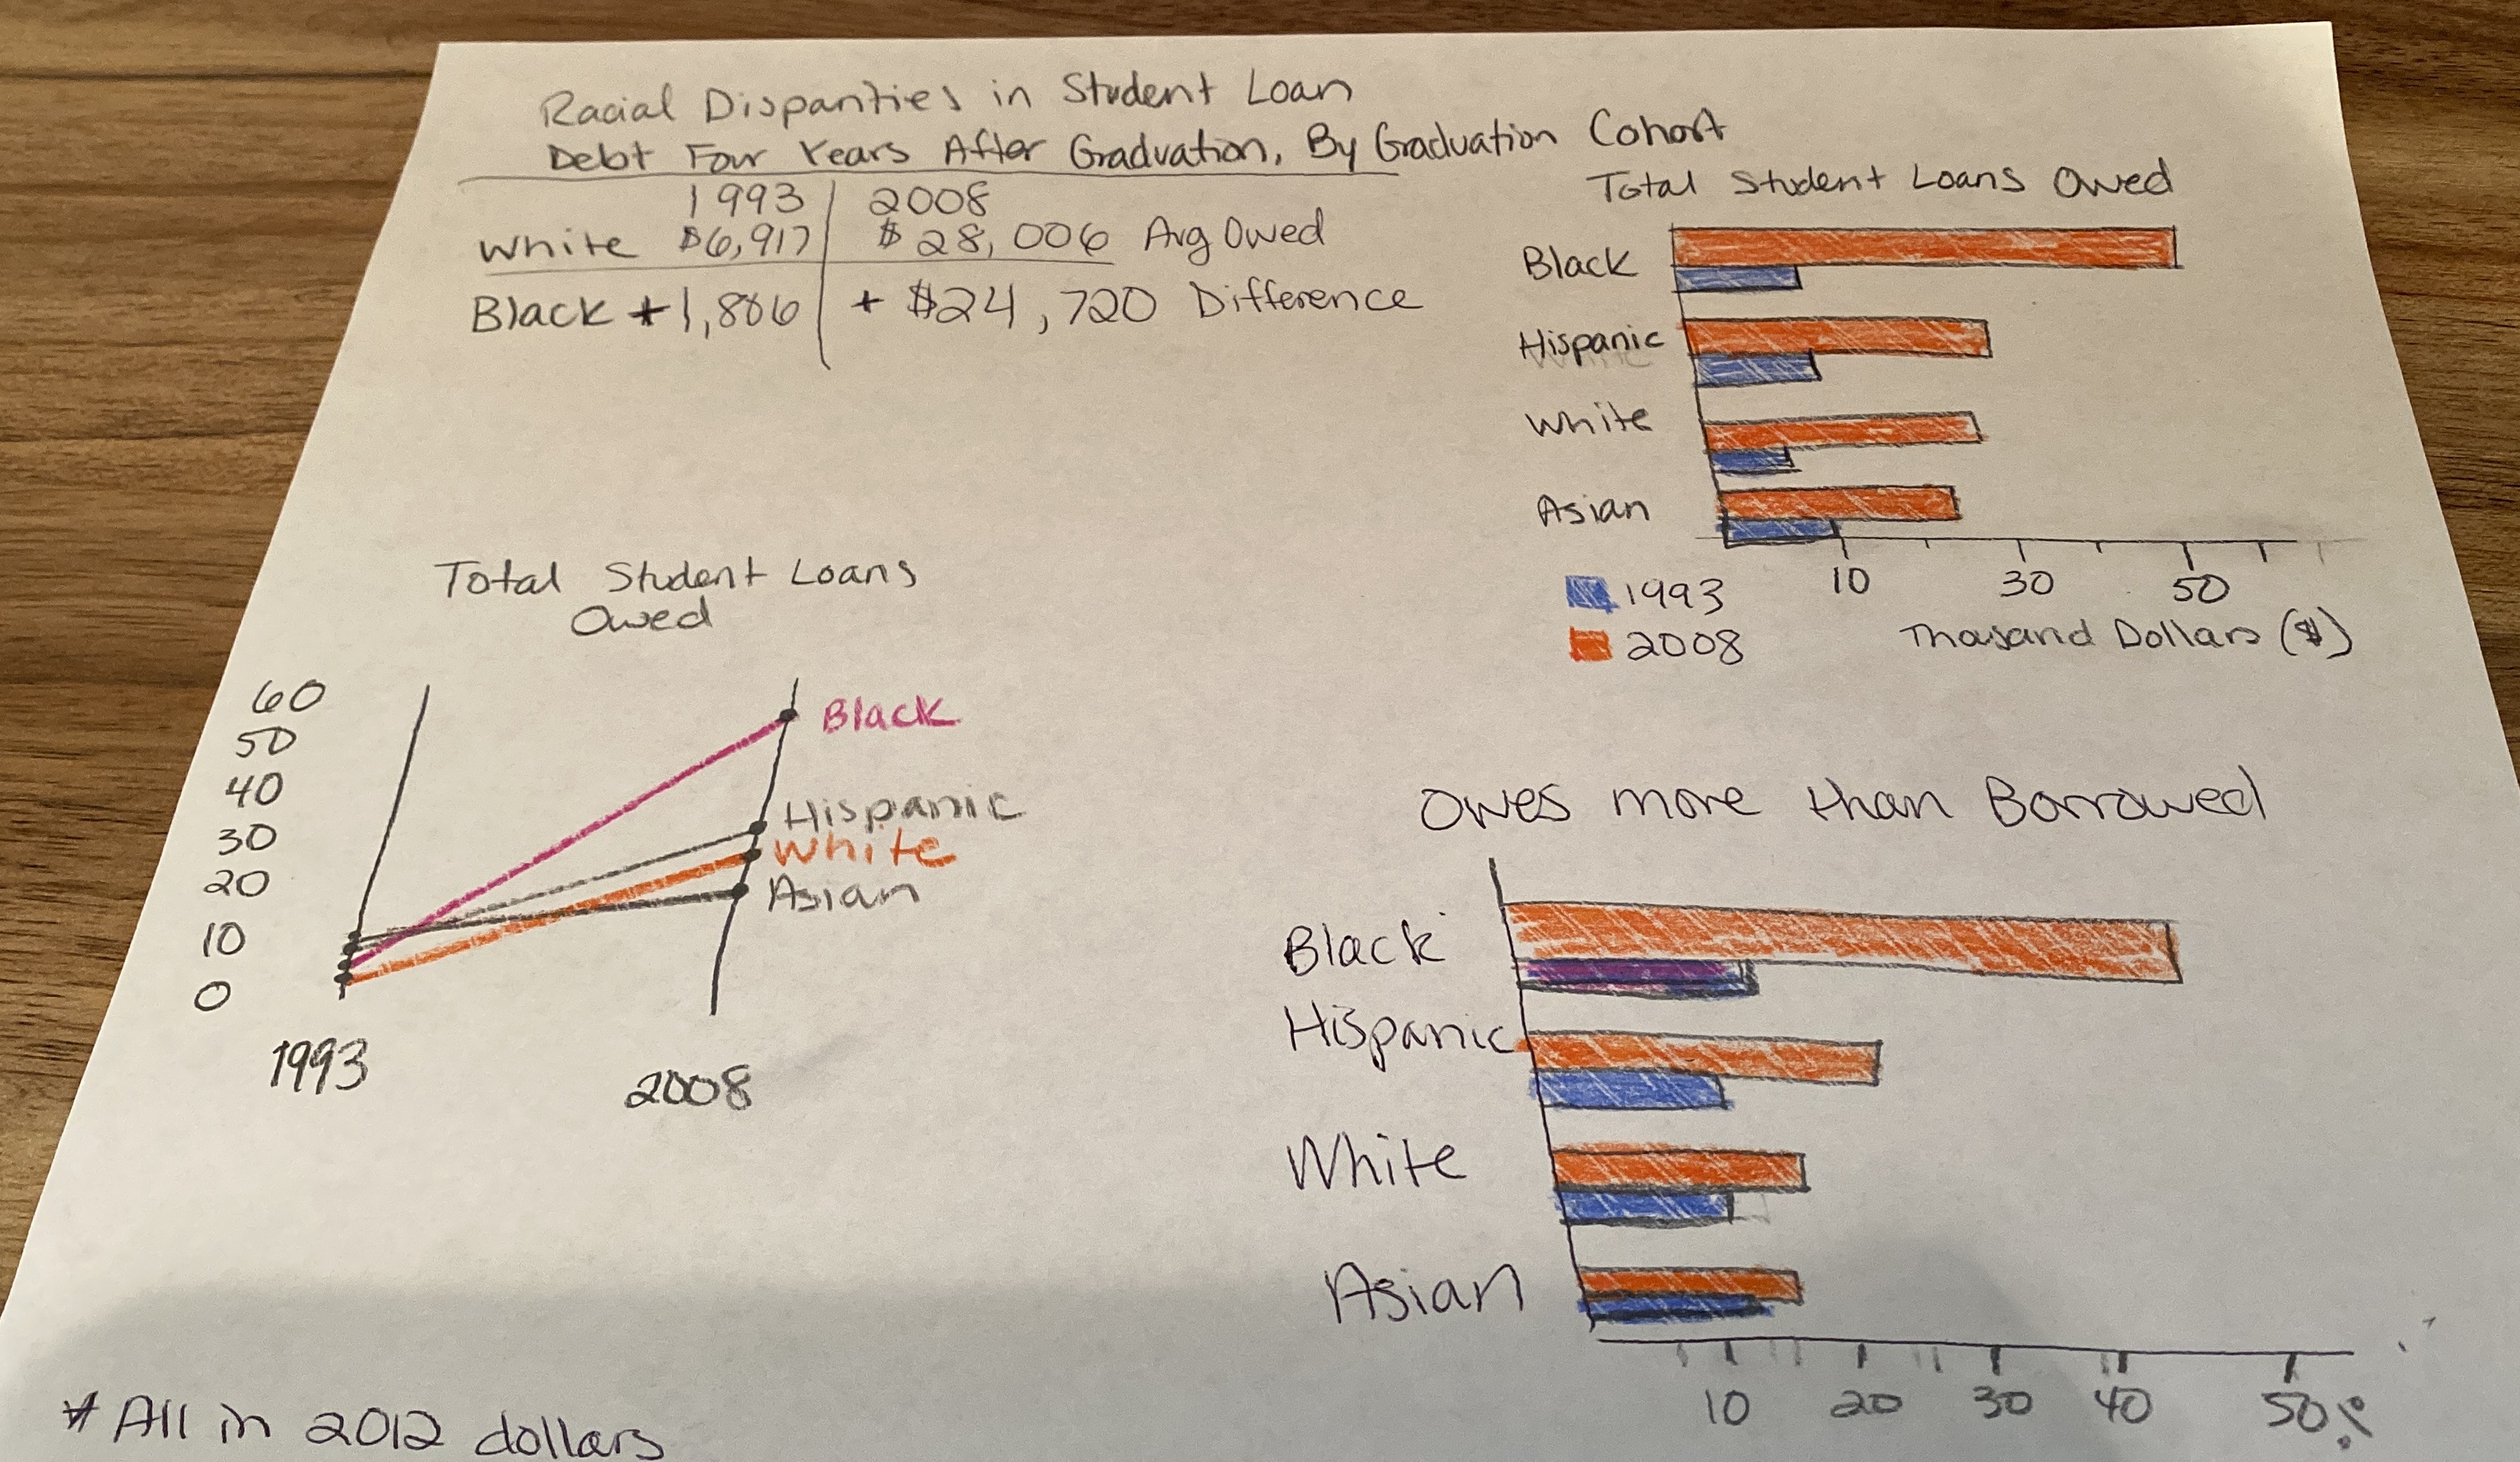 Racial Disparities in Student Loan
Debt Four Years After Graduation, By Graduation Cohort
1993 2008
White $6,917 $28,006 Avg Owed
Black +1,806 + $24,720 Difference
Total Student Loans Owed
Black
Hispanic
White
Asian
10 30 50
1993
2008
Thousand Dollars ($)
Total Student Loans
Owed
60
50
40
30
20
10
0
Black
Hispanic
White
Asian
1993 2008
Owes more than Borrowed
Black
Hispanic
White
Asian
10 20 30 40 50%
* All in 2012 dollars